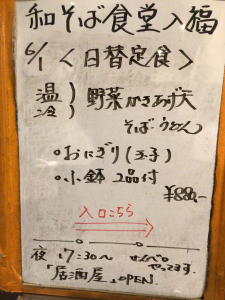 和そば食堂入福
6/1 <日替定食>
温
冷
} 野菜かきあげ天
そば・うどん
○おにぎり(玉子)
○小鉢 2品付
¥880,-
入口こちら
夜 17:30〜 せんべろやってます。
「居酒屋」OPEN.